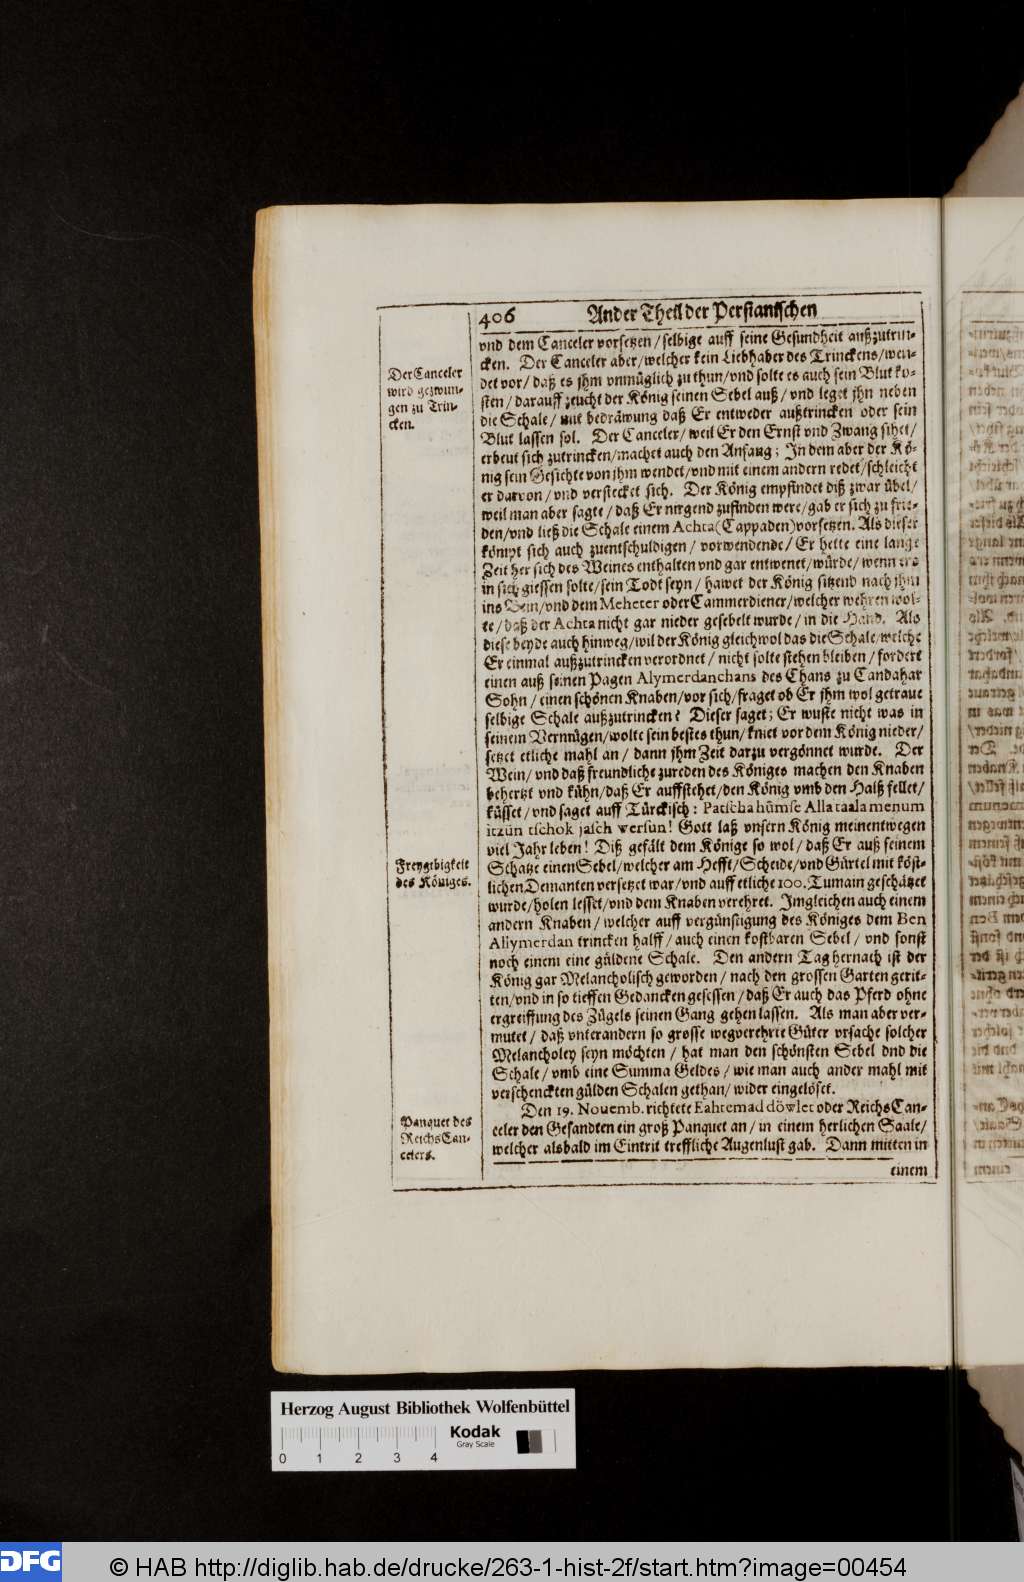 406 Ander Theil der Persianischen
vnd dem Canceler vorsetzen / selbige auff seine Gesundheit außzutrin-
cken. Der Canceler aber / welcher kein Liebhaber des Trinckens / wen-
Der Canceler
wird gezwun-
gen zu Trin-
cken.
det vor / daß es jhm vnmüglich zu thun / vnd solte es auch sein Blut ko-
sten / darauff zeucht der König seinen Sebel auß / vnd leget jhn neben
die Schale / mit bedräwung daß Er entweder außtrincken oder sein
Blut lassen sol. Der Canceler / weil Er den Ernst vnd Zwang sihet /
erbeut sich zutrincken / machet auch den Anfang ; In dem aber der Kö-
nig sein Gesichte von jhm wendet / vnd mit einem andern redet / schleicht
er darvon / vnd verstecket sich. Der König empfindet diß zwar übel /
weil man aber sagte / daß Er nirgend zufinden were / gab er sich zu frie-
den / vnd ließ die Schale einem Achta (Cappaden) vorsetzen. Als dieser
kömpt sich auch zuentschuldigen / vorwendende / Er hette eine lange
Zeit her sich des Weines enthalten vnd gar entwenet / würde / wenn ers
in sich giessen solte / sein Todt seyn / hawet der König sitzend nach jhm
ins Bein / vnd dem Meheter oder Cammerdiener / welcher wehren wol-
te / daß der Achta nicht gar nieder gesebelt wurde / in die Hand. Als
diese beyde auch hinweg / wil der König gleichwol das die Schale / welche
Er einmal außzutrincken verordnet / nicht solte stehen bleiben / fordert
einen auß seinen Pagen Alymerdanchans des Chans zu Candahar
Sohn / einen schönen Knaben / vor sich / fraget ob Er jhm wol getraue
selbige Schale außzutrincken? Dieser saget ; Er wuste nicht was in
seinem Vermügen / wolte sein bestes thun / kniet vor dem König nieder /
setzet etliche mahl an / dann jhm Zeit darzu vergönnet wurde. Der
Wein / vnd daß freundliche zureden des Königes machen den Knaben
behertzt vnd kühn / daß Er auffstehet / den König vmb den Halß fellet /
küsset / vnd saget auff Türckisch : Patschahümse Alla taala menum
itzün tschok jasch wersun! Gott laß vnsern König meinentwegen
viel Jahr leben! Diß gefält dem Könige so wol / daß Er auß seinem
Freygebigkeit
des Königes.
Schatze einen Sebel / welcher am Hefft / Scheide / vnd Gürtel mit köst-
lichen Demanten versetzet war / vnd auff etliche 100. Tumain geschätzet
wurde / holen lesset / vnd dem Knaben verehret. Imgleichen auch einem
andern Knaben / welcher auff vergünstigung des Königes dem Ben
Aliymerdan trincken halff / auch einen kostbaren Sebel / vnd sonst
noch einem eine güldene Schale. Den andern Tag hernach ist der
König gar Melancholisch geworden / nach den grossen Garten gerit-
ten / vnd in so tieffen Gedancken gesessen / daß Er auch das Pferd ohne
ergreiffung des Zügels seinen Gang gehen lassen. Als man aber ver-
mutet / daß vnterandern so grosse wegverehrte Güter vrsache solcher
Melancholey seyn möchten / hat man den schönsten Sebel vnd die
Schale / vmb eine Summa Geldes / wie man auch ander mahl mit
verschenckten gülden Schalen gethan / wider eingelöset.
Panquet des
Reichs Can-
celers.
Den 19. Nouemb. richtete Eahtemad döwlet oder Reichs Can-
celer den Gesandten ein groß Panquet an / in einem herlichen Saale /
welcher alsbald im Eintrit treffliche Augenlust gab. Dann mitten in
einem
Herzog August Bibliothek Wolfenbüttel
Kodak
Gray Scale
0 1 2 3 4
DFG © HAB http://diglib.hab.de/drucke/263-1-hist-2f/start.htm?image=00454